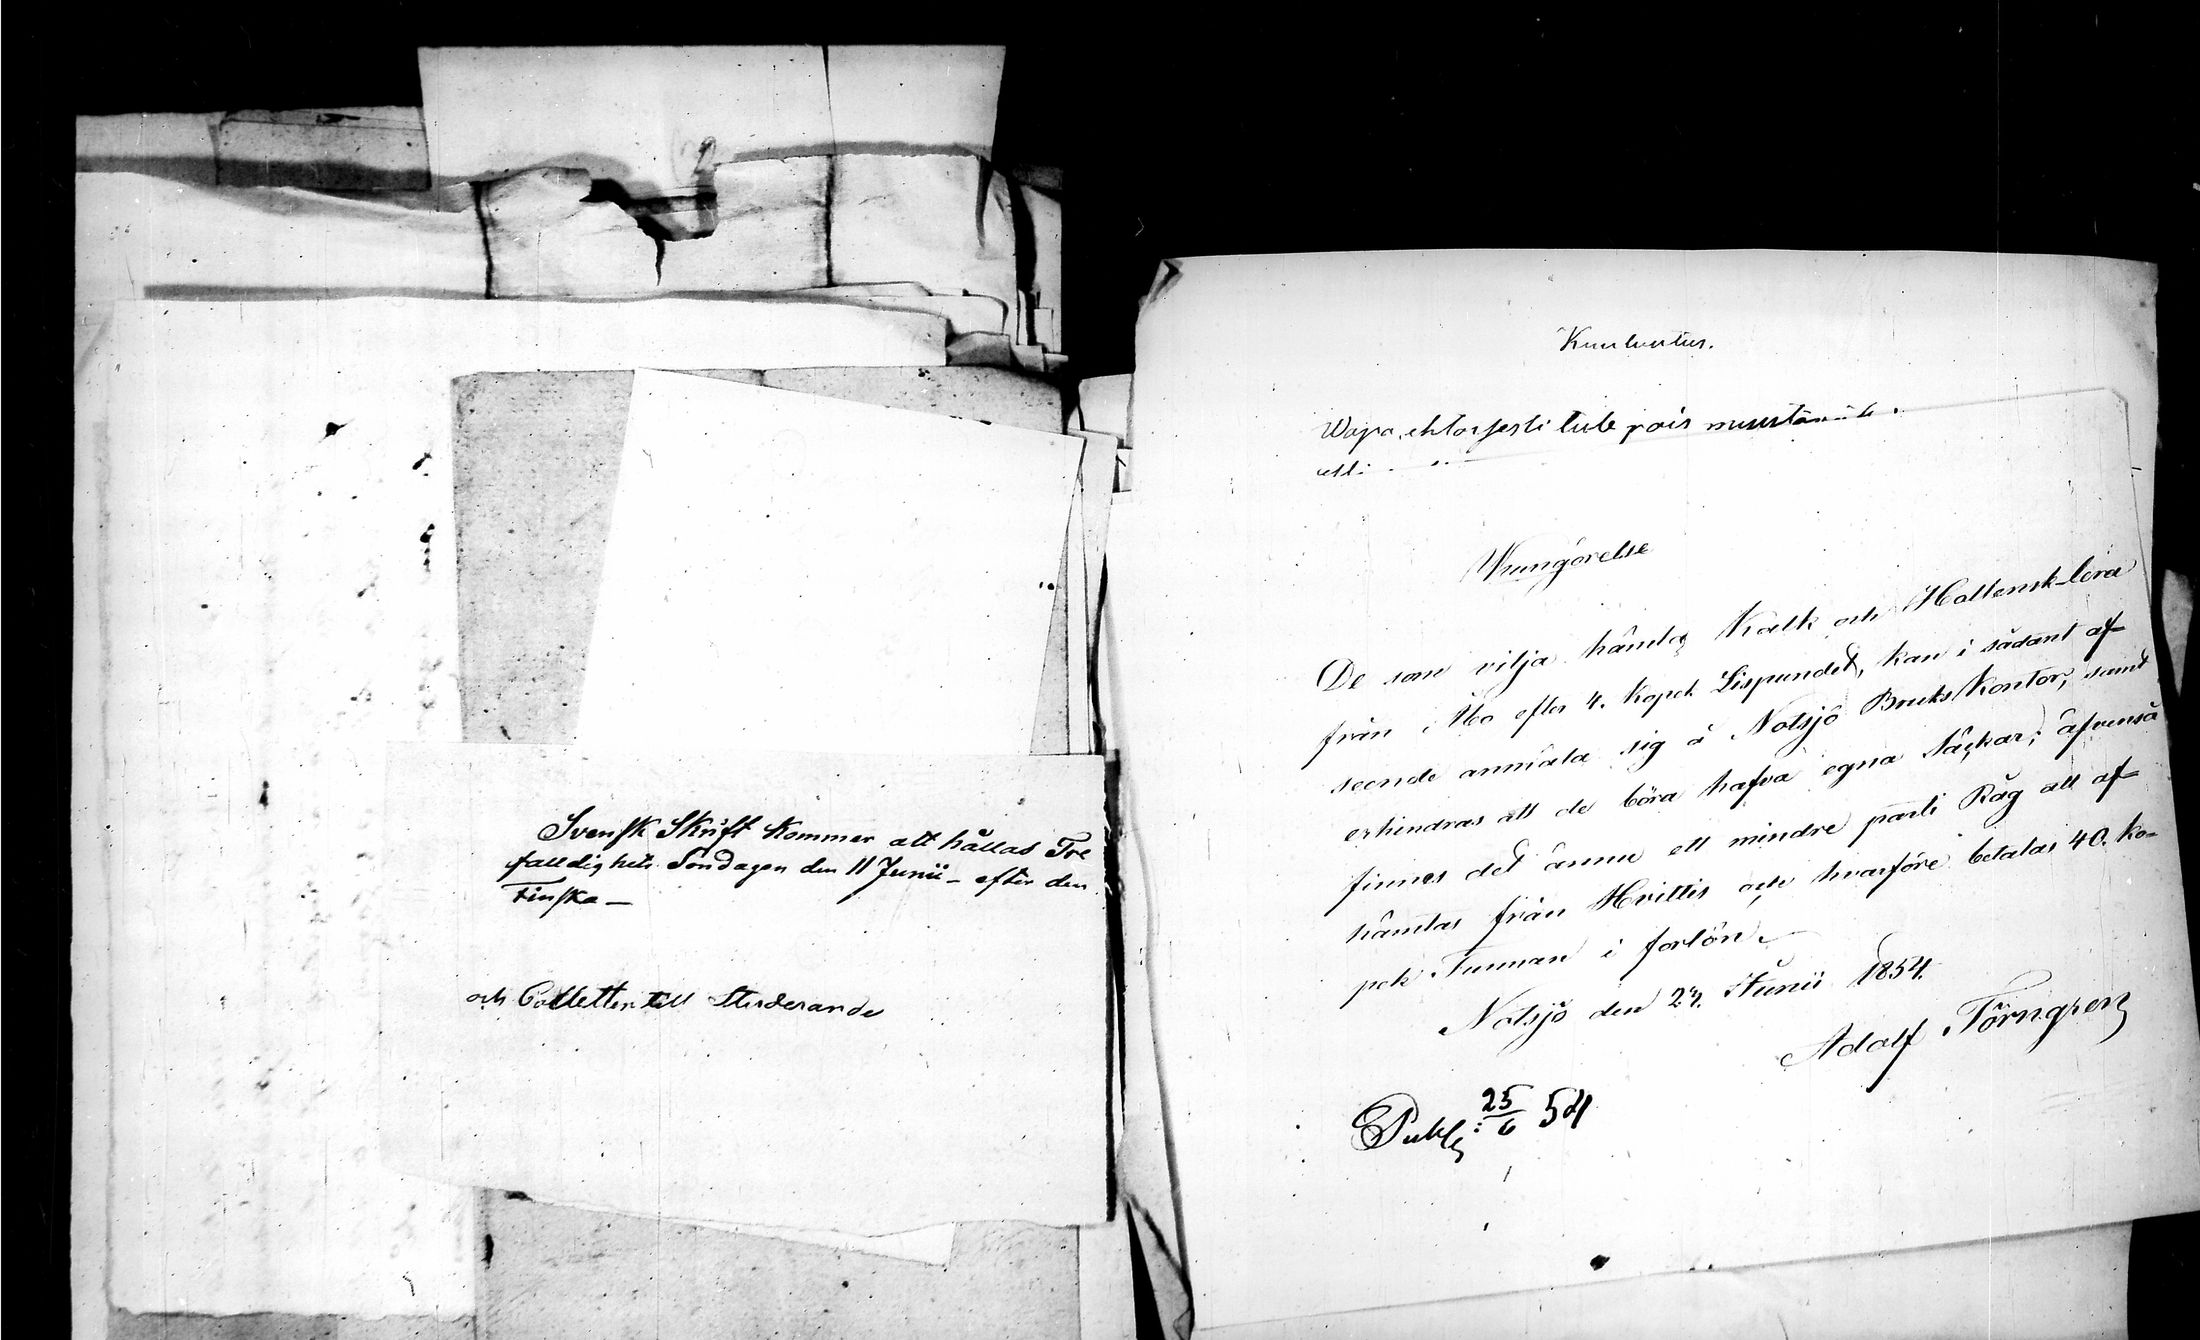 Svensk Skrift kommer att hållas Tre
falldighets Söndagen den 11 Junii – efter den
Finska –
och Collecter till Studerande
Kuulutus.
pois
Kungörelse
De som vilja hämta Kalk och Hallensk-lera
från Åbo efter 4. kopek Lispundet, kan i sådant af-
seende anmäla sig å Notsjö Bruks Kontor, samt
erhindras att de böra hafva egna säckar; äfvenså
finnes det ännu ett mindre parti Råg att af-
hämtas från Hvittis och hvarföre betalas 40. ko-
pek Tunnan i forlön.
Notsjö den 24. Junii 1854.
Adolf Törngren
Publ: 25/6 54